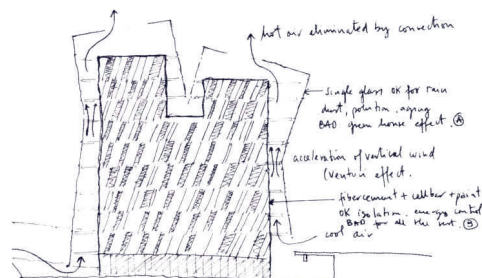 hot air eliminated by convection
single glass OK for rain
dust, polution, aging
BAD green house effect. Ⓐ
acceleration of vertical wind
(venturi effect.
fibercement + + paint
OK isolation. energy control
BAD for all the rest. Ⓑ
cool air